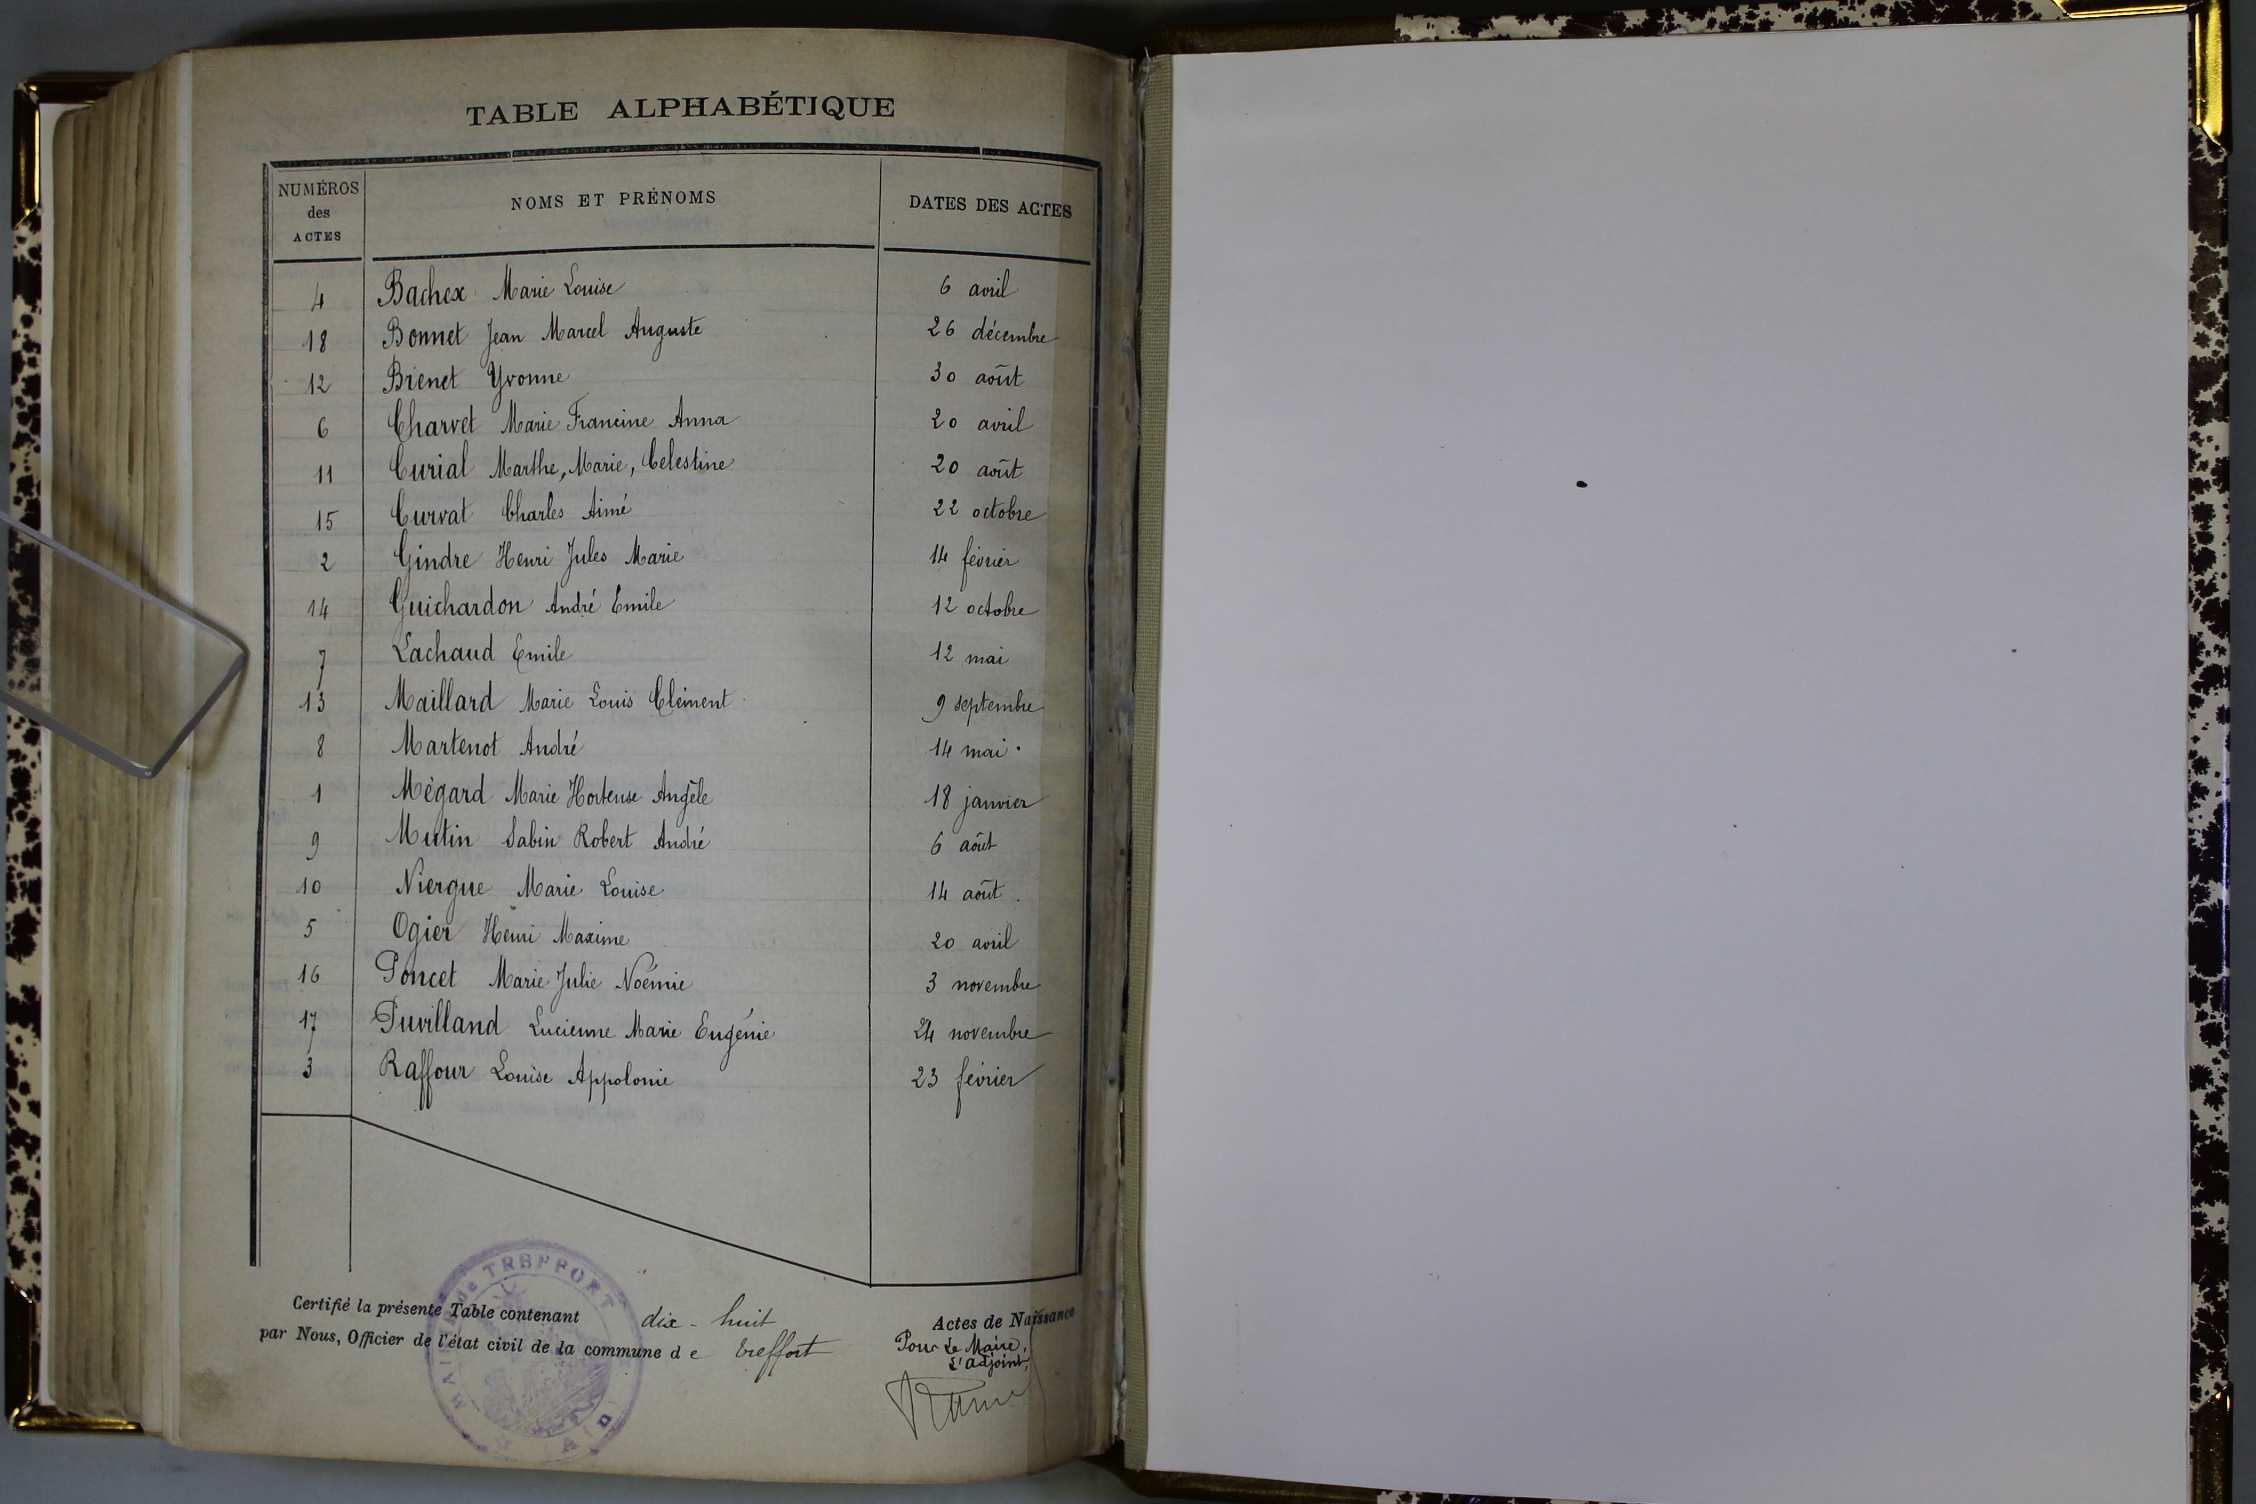 TABLE ALPHABÉTIQUE
NUMÉROS des ACTES NOMS ET PRÉNOMS DATES DES ACTES
4 Bachex Marie Louise 6 avril
18 Bonnet Jean Marcel Auguste 26 décembre
12 Brenet Yvonne 30 août
6 Charvet Marie Francine Anna 20 avril
11 Curial Marthe, Marie, Celestine 20 août
15 Curvat Charles Aimé 22 octobre
2 Gindre Henri Jules Marie 14 février
14 Guichardon André Emile 12 octobre
7 Lachaud Emile 12 mai
13 Maillard Marie Louis Clément 9 septembre
8 Martenot André 14 mai
1 Mégard Marie Hortense Angèle 18 janvier
9 Mutin Sabin Robert André 6 août
10 Niergue Marie Louise 14 août
5 Ogier Henri Maxime 20 avril
16 Poncet Marie Julie Noémie 3 novembre
17 Puvilland Lucienne Marie Eugénie 24 novembre
3 Raffour Louise Appolonie 23 février
Certifié la présente Table contenant dix-huit Actes de Naissance
par Nous, Officier de l'état civil de la commune de Treffort
Pour Le Maire,
L'adjoint,
MAIRIE DE TREFFORT